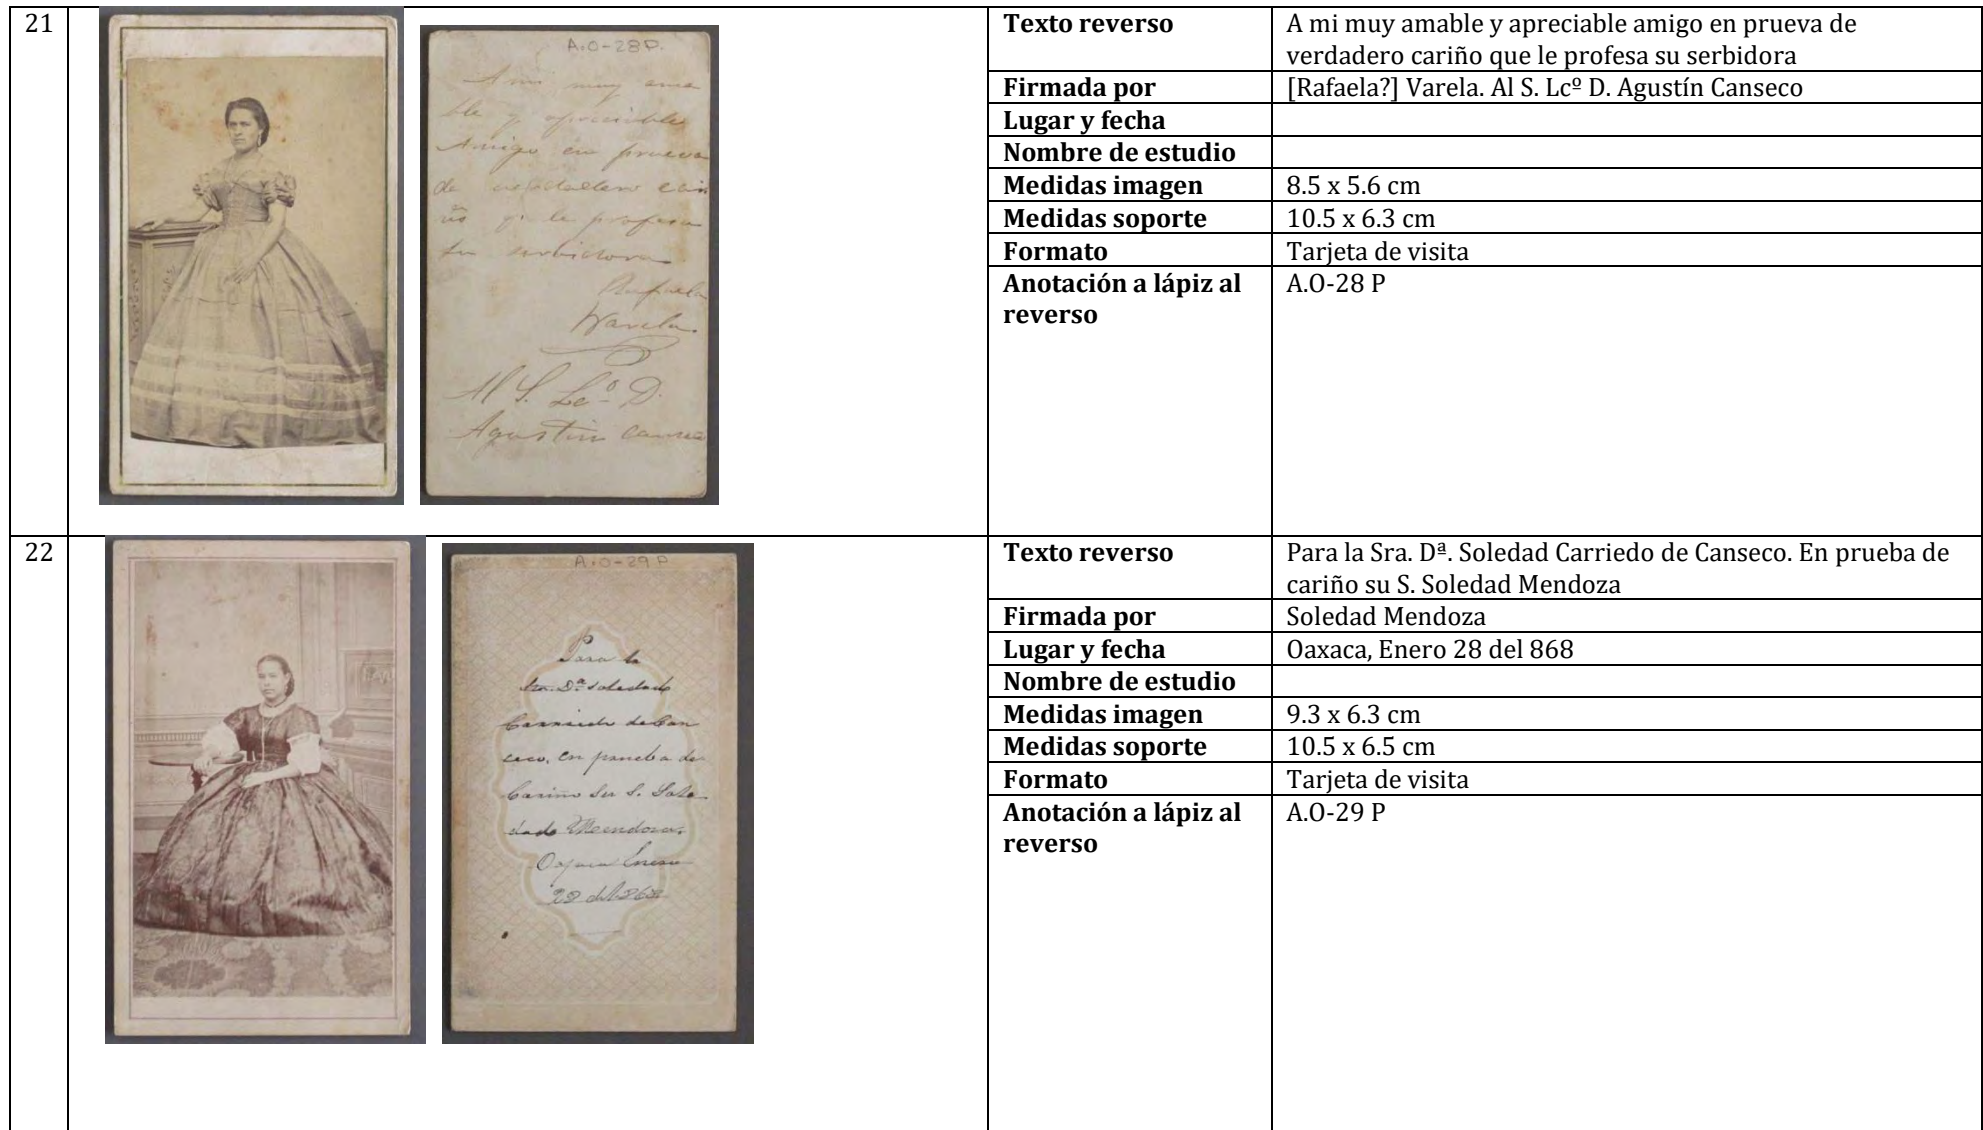 21
A.O-28P.
A mi muy ama
ble y apreciable
Amigo en prueva
de verdadero cari
ño q. le profesa
su serbidora
Rafaela
Varela
Al S. Lcº D.
Agustin Canseco
Texto reverso
A mi muy amable y apreciable amigo en prueva de
verdadero cariño que le profesa su serbidora
Firmada por
[Rafaela?] Varela. Al S. Lcº D. Agustín Canseco
Lugar y fecha
Nombre de estudio
Medidas imagen
8.5 x 5.6 cm
Medidas soporte
10.5 x 6.3 cm
Formato
Tarjeta de visita
Anotación a lápiz al
reverso
A.O-28 P
22
A.O-29 P
Para la
Sra. Dª Soledad
Carriedo de Can
ceco, en prueba de
Cariño su S. Sole
dad Mendoza.
Oaxaca Enero
28 del 868
Texto reverso
Para la Sra. Dª. Soledad Carriedo de Canseco. En prueba de
cariño su S. Soledad Mendoza
Firmada por
Soledad Mendoza
Lugar y fecha
Oaxaca, Enero 28 del 868
Nombre de estudio
Medidas imagen
9.3 x 6.3 cm
Medidas soporte
10.5 x 6.5 cm
Formato
Tarjeta de visita
Anotación a lápiz al
reverso
A.O-29 P